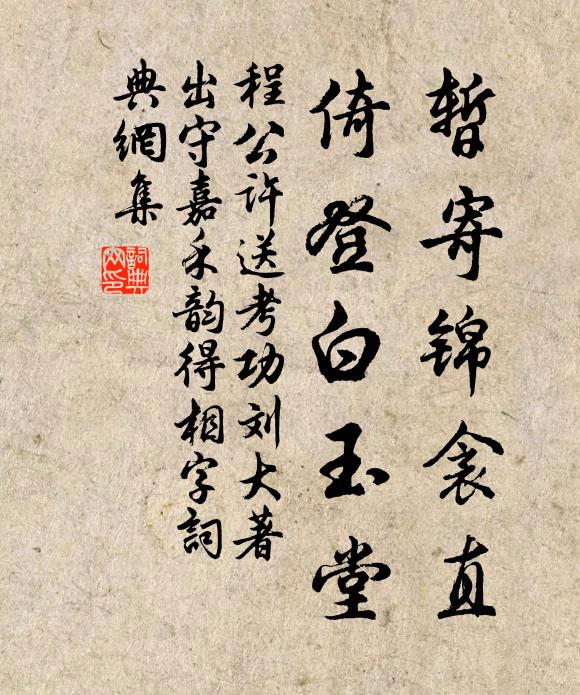 暫寄锦衾直
倚登白玉堂
程公许送考功刘大著
出守嘉禾韵得相字詞
典網集
詞典
网印